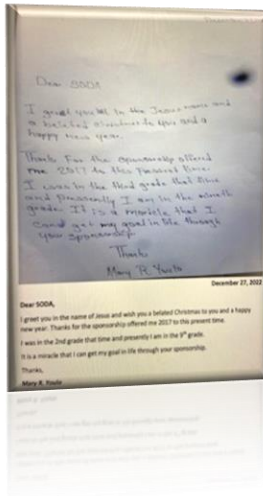 Dear SODA
I greet you in the Jesus name and
a belated christmas to you and a
happy new year.
Thanks For the sponsorship offered
me 2017 to this present time.
I was in the third grade that time
and presently I am in the ninth
grade. It is a miracle that I
can get my goal in life through
your sponsorship.
Thanks
Mary R. Youlo
December 27, 2022
Dear SODA,
I greet you in the name of Jesus and wish you a belated Christmas to you and a happy
new year. Thanks for the sponsorship offered me 2017 to this present time.
I was in the 2nd grade that time and presently I am in the 9th grade.
It is a miracle that I can get my goal in life through your sponsorship.
Thanks,
Mary R. Youlo